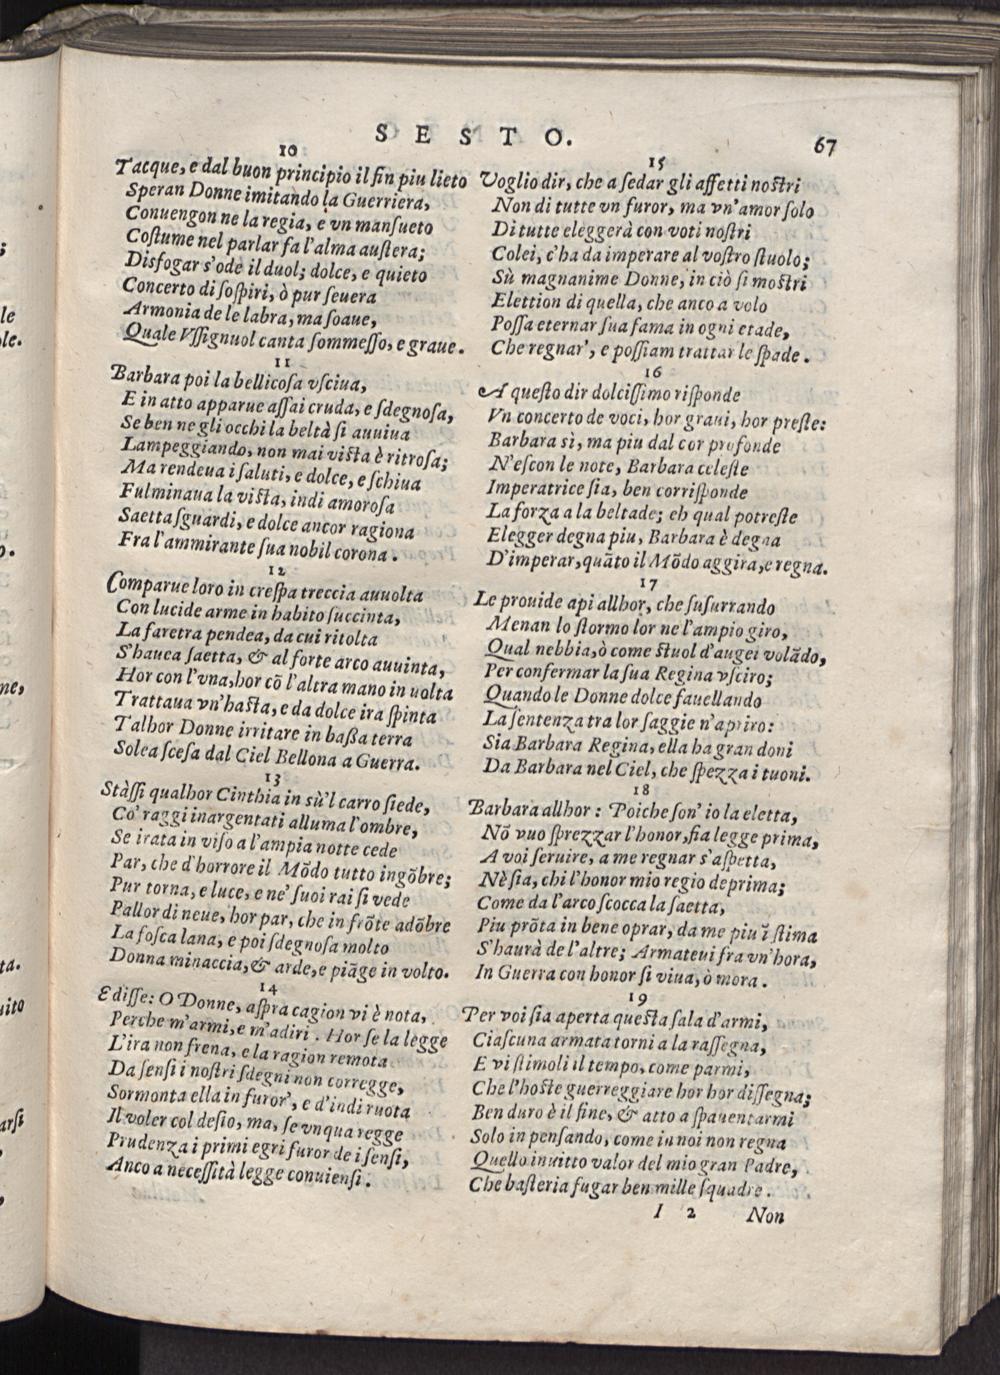 SESTO. 67
10
Tacque, e dal buon principio il fin piu lieto
Speran Donne imitando la Guerriera,
Conuengon ne la regia, e vn mansueto
Costume nel parlar fa l'alma austera;
Disfogar s'ode il duol; dolce, e quieto
Concerto di sospiri, ò pur seuera
Armonia de le labra, ma soaue,
Quale Vssignuol canta sommesso, e graue.
11
Barbara poi la bellicosa vsciua,
E in atto apparue assai cruda, e sdegnosa,
Se ben ne gli occhi la beltà si auuiua
Lampeggiando, non mai vista è ritrosa;
Ma rendeua i saluti, e dolce, e schiua
Fulminaua la vista, indi amorosa
Saetta sguardi, e dolce ancor ragiona
Fra l'ammirante sua nobil corona.
12
Comparue loro in crespa treccia auuolta
Con lucide arme in habito succinta,
La faretra pendea, da cui ritolta
S'hauea saetta, & al forte arco auuinta,
Hor con l'vna, hor cō l'altra mano in uolta
Trattaua vn'hasta, e da dolce ira spinta
Talhor Donne irritare in bassa terra
Solea scesa dal Ciel Bellona a Guerra.
13
Stàssi qualhor Cinthia in sù'l carro siede,
Co' raggi inargentati alluma l'ombre,
Se irata in viso a l'ampia notte cede
Par, che d'horrore il Mōdo tutto ingōbre;
Pur torna, e luce, e ne' suoi rai si vede
Pallor di neue, hor par, che in frōte adōbre
La fosca lana, e poi sdegnosa molto
Donna minaccia, & arde, e piāge in volto.
14
E disse: O Donne, aspra cagion vi è nota,
Perche m'armi, e m'adiri. Hor se la legge
L'ira non frena, e la ragion remota
Da sensi i nostri sdegni non corregge,
Sormonta ella in furor', e d'indi ruota
Il voler col desio, ma, se vnqua regge
Prudenza i primi egri furor de i sensi,
Anco a necessità legge conuiensi.
15
Voglio dir, che a sedar gli affetti nostri
Non di tutte vn furor, ma vn'amor solo
Di tutte eleggerà con voti nostri
Colei, c'ha da imperare al vostro stuolo;
Sù magnanime Donne, in ciò si mostri
Elettion di quella, che anco a volo
Possa eternar sua fama in ogni etade,
Che regnar', e possiam trattar le spade.
16
A questo dir dolcissimo risponde
Vn concerto de voci, hor graui, hor preste:
Barbara sì, ma piu dal cor profonde
N'escon le note, Barbara celeste
Imperatrice sia, ben corrisponde
La forza a la beltade; eh qual potreste
Elegger degna piu, Barbara è degna
D'imperar, quāto il Mōdo aggira, e regna.
17
Le prouide api allhor, che susurrando
Menan lo stormo lor ne l'ampio giro,
Qual nebbia, ò come stuol d'augei volādo,
Per confermar la sua Regina vsciro;
Quando le Donne dolce fauellando
La sentenza tra lor saggie n'apriro:
Sia Barbara Regina, ella ha gran doni
Da Barbara nel Ciel, che spezza i tuoni.
18
Barbara allhor: Poiche son' io la eletta,
Nō vuo sprezzar l'honor, sia legge prima,
A voi seruire, a me regnar s'aspetta,
Nè sia, chi l'honor mio regio deprima;
Come da l'arco scocca la saetta,
Piu prōta in bene oprar, da me piu ī stima
S'haurà de l'altre; Armateui fra vn'hora,
In Guerra con honor si viua, ò mora.
19
Per voi sia aperta questa sala d'armi,
Ciascuna armata torni a la rassegna,
E vi stimoli il tempo, come parmi,
Che l'hoste guerreggiare hor hor dissegna;
Ben duro è il fine, & atto a spauentarmi
Solo in pensando, come in noi non regna
Quello inuitto valor del mio gran Padre,
Che basteria fugar ben mille squadre.
I 2 Non